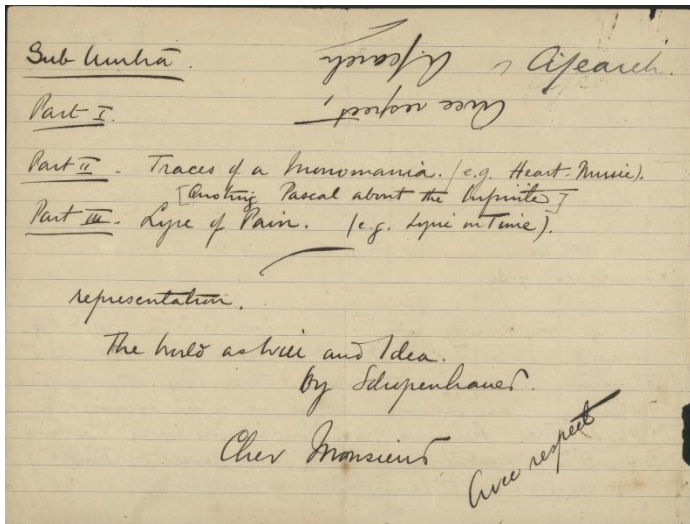 Sub Umbrâ.
Part I.
Avec respect,
Part II. Traces of a Monomania. (e.g. Heart-Music).
[Quoting Pascal about the Infinite]
Part III. Lyre of Pain. (e.g. Lyric on Time).
representation.
The World as Will and Idea.
by Schopenhauer.
Cher Monsieur
Avec respect